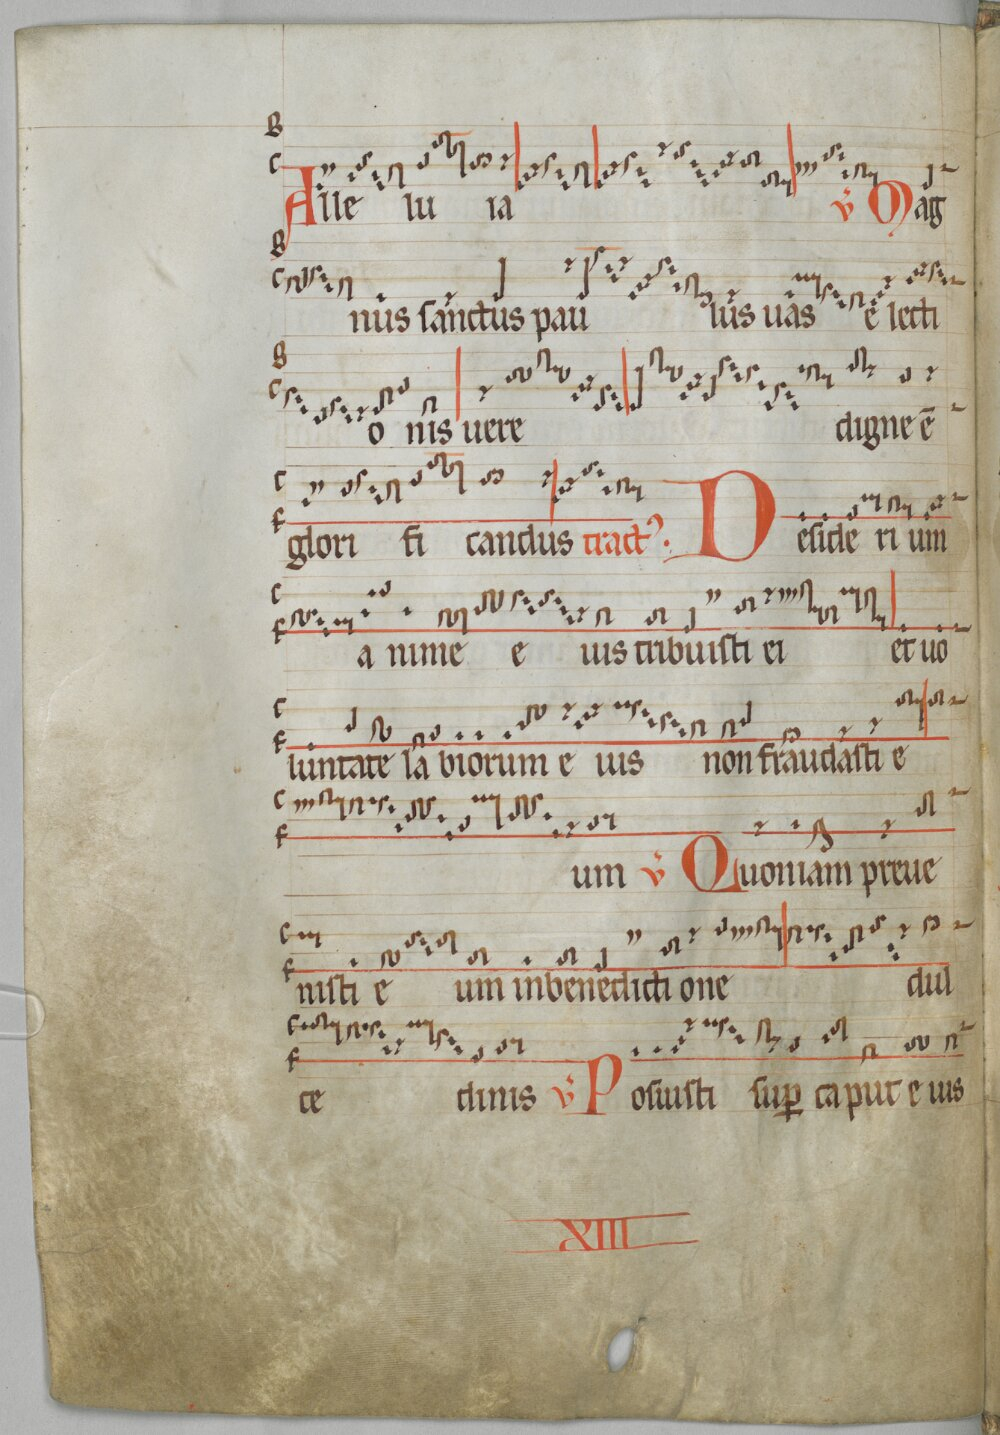 Alle lu ia v̄ Mag
nus sanctus pau lus uas e lecti
o nis uere digne ē
glori fi candus tractꝰ. Deside ri um
a nime e ius tribuisti ei et uo
luntate la biorum e ius non fraudasti e
um v̄ Quoniam preue
nisti e um inbenedicti one dul
ce dinis v̄ Posuisti suꝑ ca put e ius
XIII